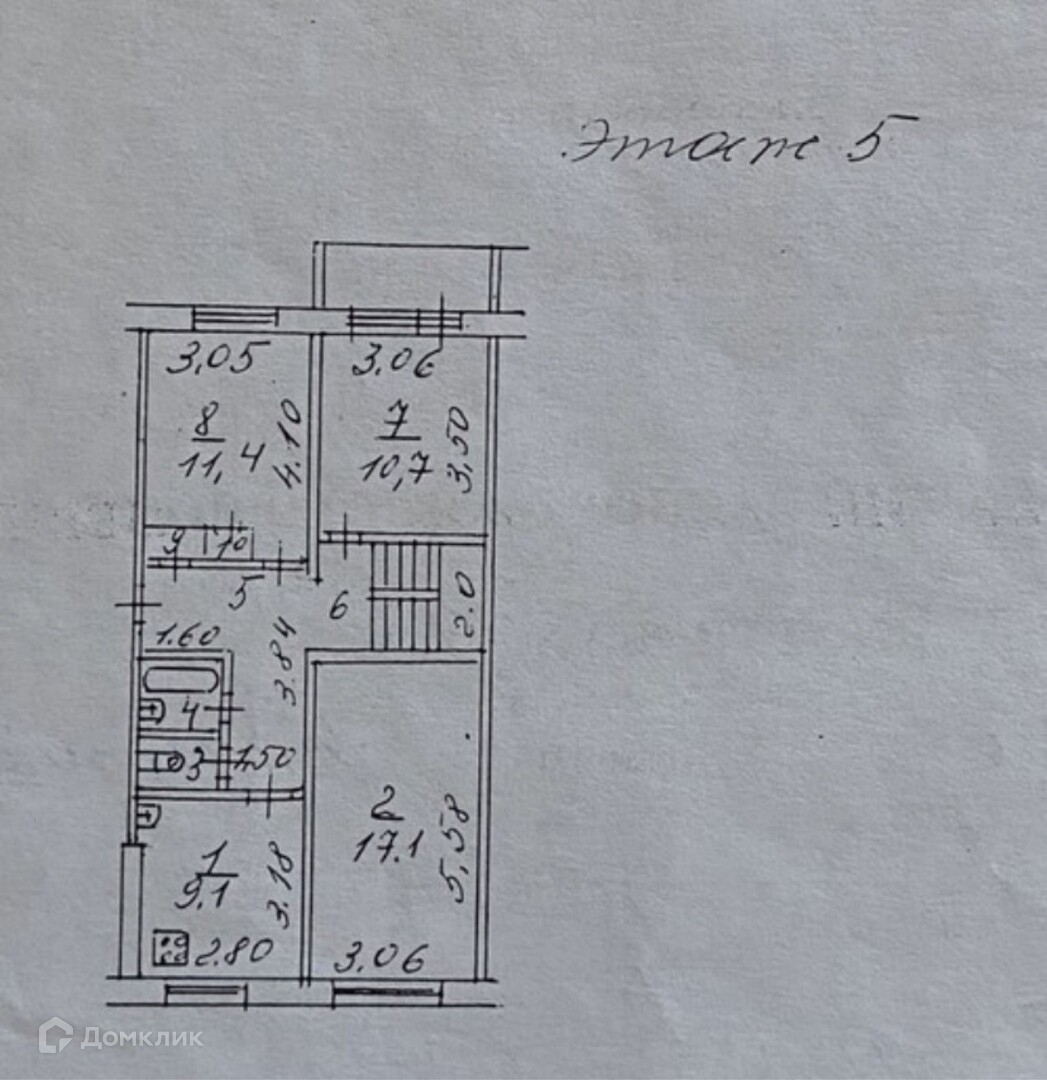 этаж 5
3,05
3,06
8
11,4
4.10
7
10,7
3,50
9
10
5
6
2.0
1.60
3.84
4
3
1,50
2
17.1
5,58
1
9.1
3.18
2.80
3.06
Домклик